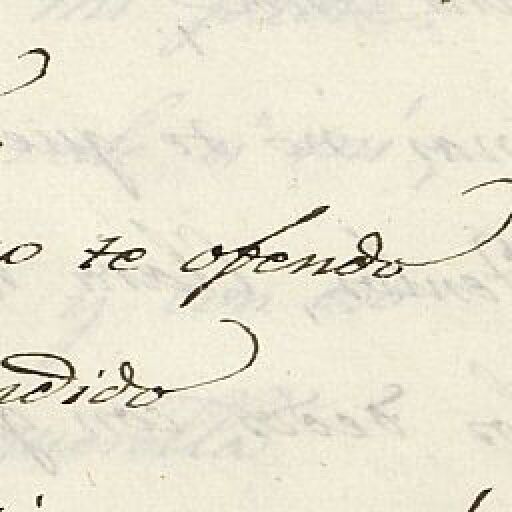 o te ofendo
ndido